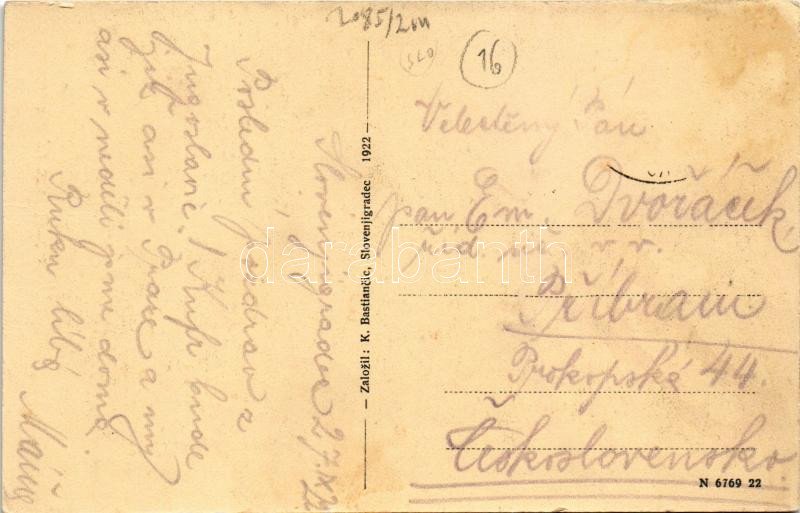 2085/2m
16
Slovenjigradec 27.IX.22
Poslední pozdrav z
Jugoslavie!
již asi v Praze a my
asi v neděli jsme doma.
Ruku líbá
Máňa
— Založil: K. Bastiančic, Slovenjigradec 1922 —
Velectěný Pán
pan Em. Dvořáček
řed.
Příbram
Prokopská 44.
Československo.
N 6769 22
darabanth